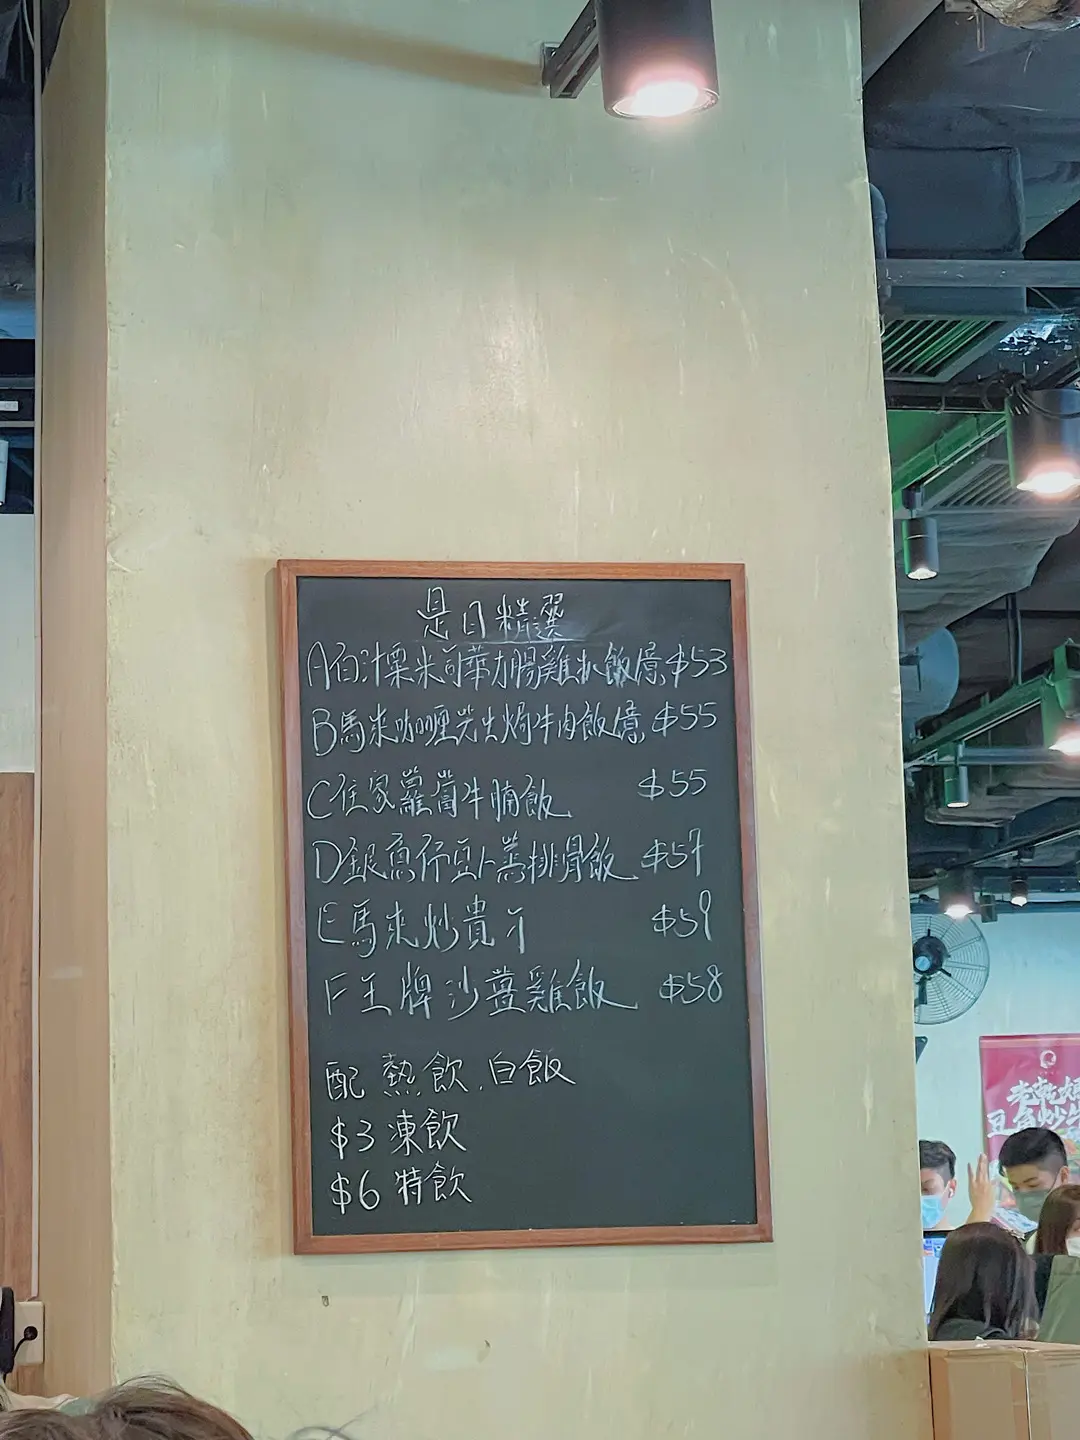 是日精選
A 白汁粟米司華力腸雞扒飯/意 $53
B 馬來咖喱羊生焗牛肉飯/意 $55
C 住家蘿蔔牛腩飯 $55
D 銀魚仔豆卜蒸排骨飯 $57
E 馬來炒貴刁 $59
F 王牌沙薑雞飯 $58
配 熱飲.白飯
$3 凍飲
$6 特飲
老乾媽
豆角炒牛